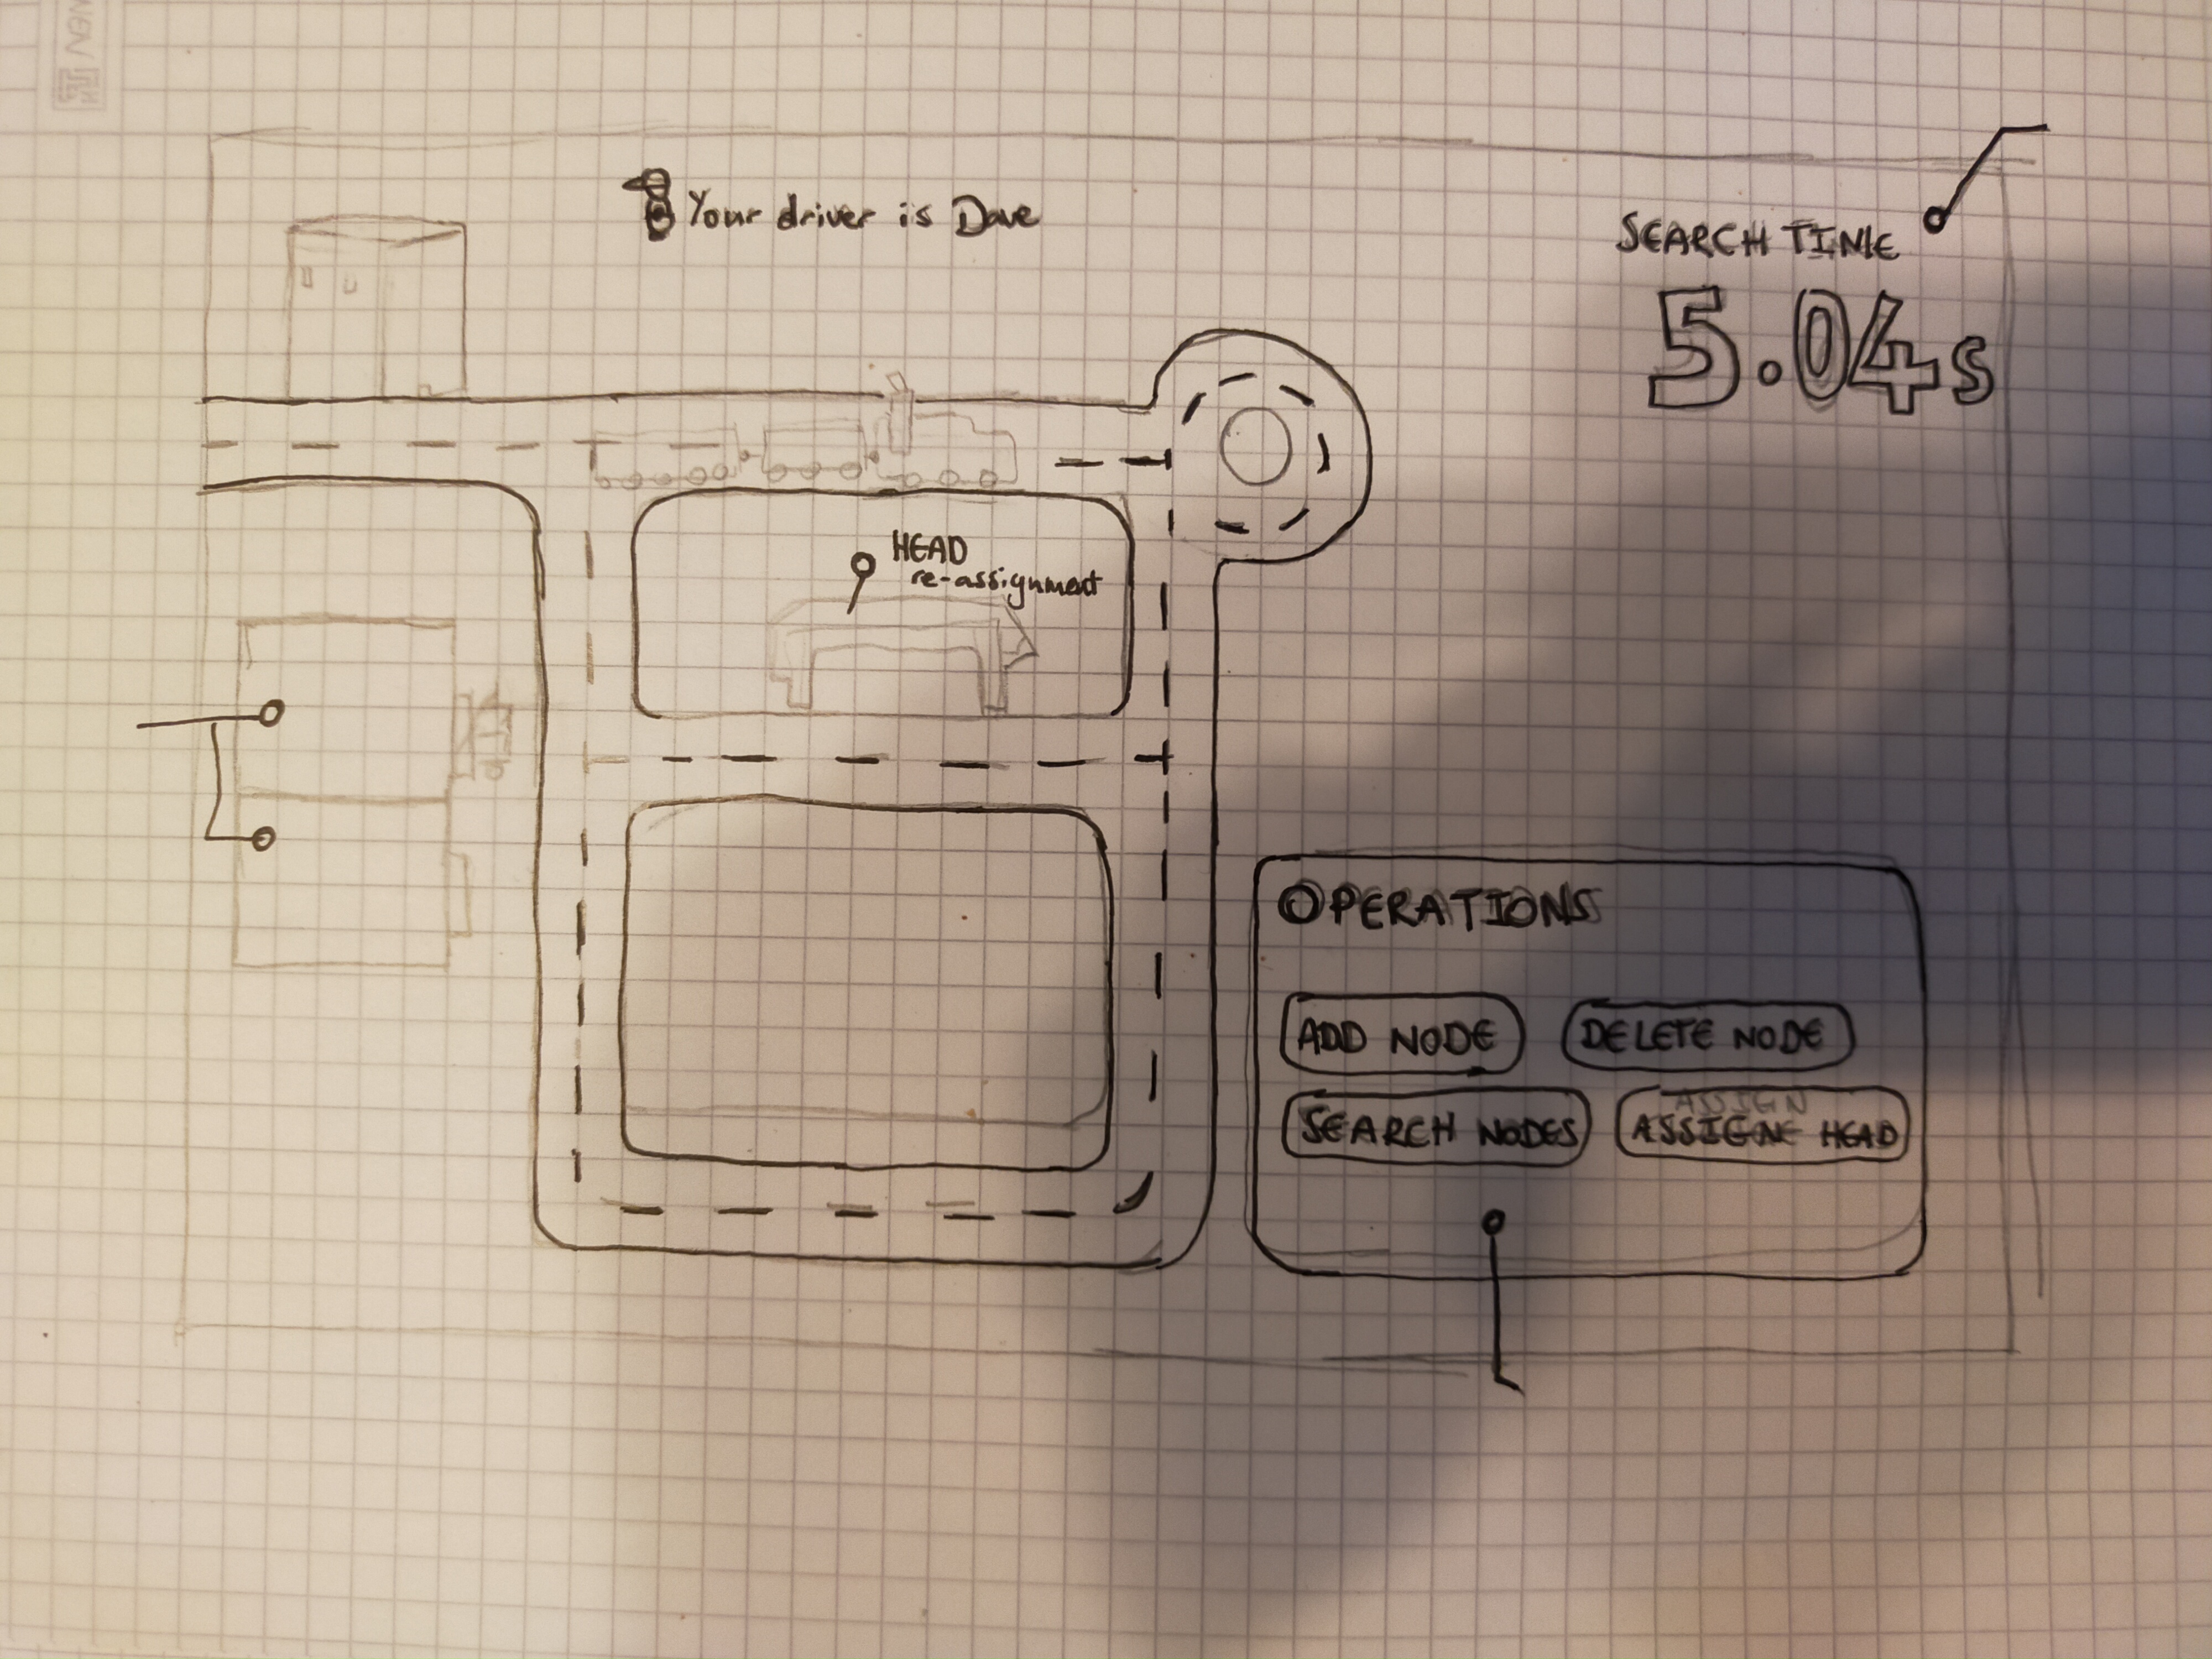 Your driver is Dave
SEARCH TIME
5.04s
HEAD
re-assignment
OPERATIONS
ADD NODE
DELETE NODE
SEARCH NODES
ASSIGN
ASSIGNE HEAD